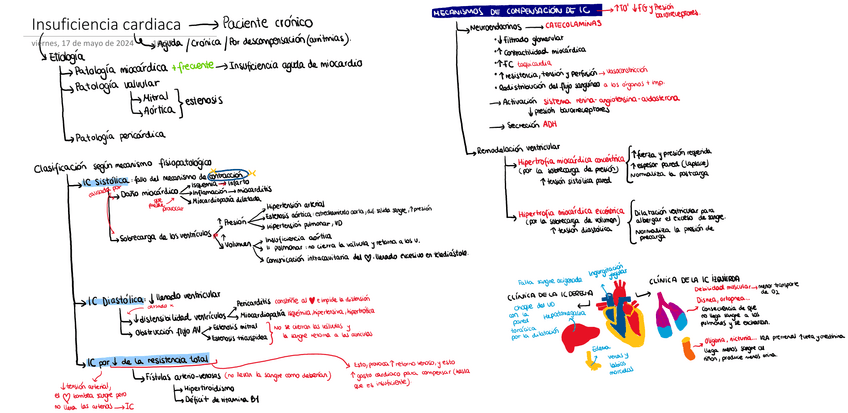 Insuficiencia cardiaca → Paciente crónico
viernes, 17 de mayo de 2024
Aguda / Crónica / Por descompensación (arritmias).
Etiología
Patología miocárdica + frecuente → Insuficiencia aguda de miocardio
Patología valvular
Mitral
Aórtica
estenosis
Patología pericárdica
Clasificación según mecanismo fisiopatológico
IC Sistólica: fallo del mecanismo de contracción
causada por
Daño miocárdico
que puede provocar
Isquemia → infarto
Inflamación → miocarditis
Miocardiopatía dilatada
Sobrecarga de los ventrículos
↑ Presión
Hipertensión arterial
Estenosis aórtica: sale sangre, ↑ presión
Hipertensión pulmonar, VD
↑ Volumen
Insuficiencia aórtica
" pulmonar: no cierra la válvula y retorna a los v.
Comunicación intracavitaria del ♥. llenado excesivo en telediástole.
IC Diastólica: ↓ llenado ventricular
↓ distensibilidad ventrículos
Pericarditis constriñe al ♥ e impide la distensión
Miocardiopatía isquémica, hipertensiva, hipertrófica
Obstrucción flujo AV
Estenosis mitral
Estenosis tricúspidea
No se cierran las válvulas y la sangre retorna a las aurículas
IC por ↓ de la resistencia total
↓ tensión arterial,
el ♥ bombea sangre pero
no llena las arterias → IC
Fístulas arterio-venosas (no llevan la sangre como deberían)
Hipertiroidismo
Déficit de vitamina B1
Esto, provoca ↑ retorno venoso, y esto
↑ gasto cardiaco para compensar (hasta
que es insuficiente)
MECANISMOS DE COMPENSACIÓN DE IC
↓ FG y Presión
barorreceptores.
Neuroendocrinos → CATECOLAMINAS
• ↓ Filtrado glomerular
• ↑ Contractilidad miocárdica
• ↑ FC taquicardia
• ↑ resistencia, tensión y perfusión → vasoconstricción
• Redistribución del flujo sanguíneo a los órganos + imp.
→ Activación sistema renina-angiotensina-aldosterona
↓ presión barorreceptores
→ Secreción ADH
Remodelación ventricular
Hipertrofia miocárdica concéntrica
(por la sobrecarga de presión)
↑ tensión sistólica pared
↑ fuerza y presión requerida
↑ espesor pared (Laplace)
Normaliza la postcarga
Hipertrofia miocárdica excéntrica
(por la sobrecarga de volumen)
↑ tensión diastólica
Dilatación ventricular para
albergar el exceso de sangre.
Normaliza la presión de
precarga
Falta sangre oxigenada
Ingurgitación yugular
CLÍNICA DE LA IC DERECHA
choque del VD
con la
pared
torácica
por la dilatación
Hepatomegalia
Edema
CLÍNICA DE LA IC IZQUIERDA
Debilidad muscular → menor transporte
de O2
Disnea, ortopnea...
Consecuencia de que
no llega sangre a los
pulmones y se encharcan.
Oliguria, nicturia...
llega menos sangre al
riñón, produce menos orina.